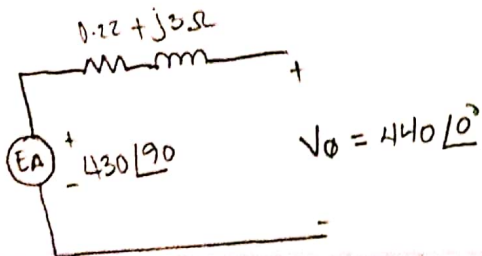 0.22 + j3Ω
+
EA
+
430∠90
-
Vø = 440∠0°
-